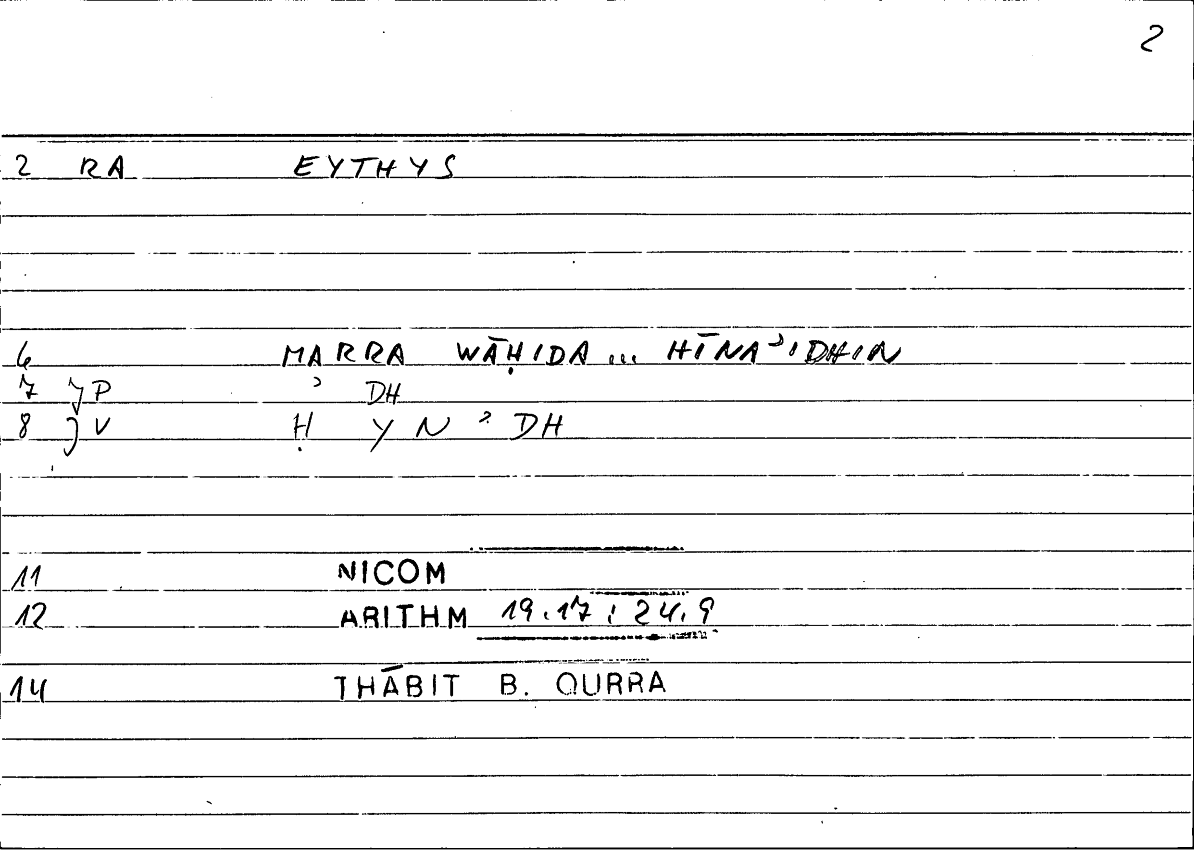 2
2 RA EYTHYS
6 MARRA WĀḤIDA ... HĪNAʾIDHIN
7 JP ʾ DH
8 JV Ḥ Y N ʾ DH
11 NICOM
12 ARITHM 19.17 ; 24.9
14 THĀBIT B. QURRA